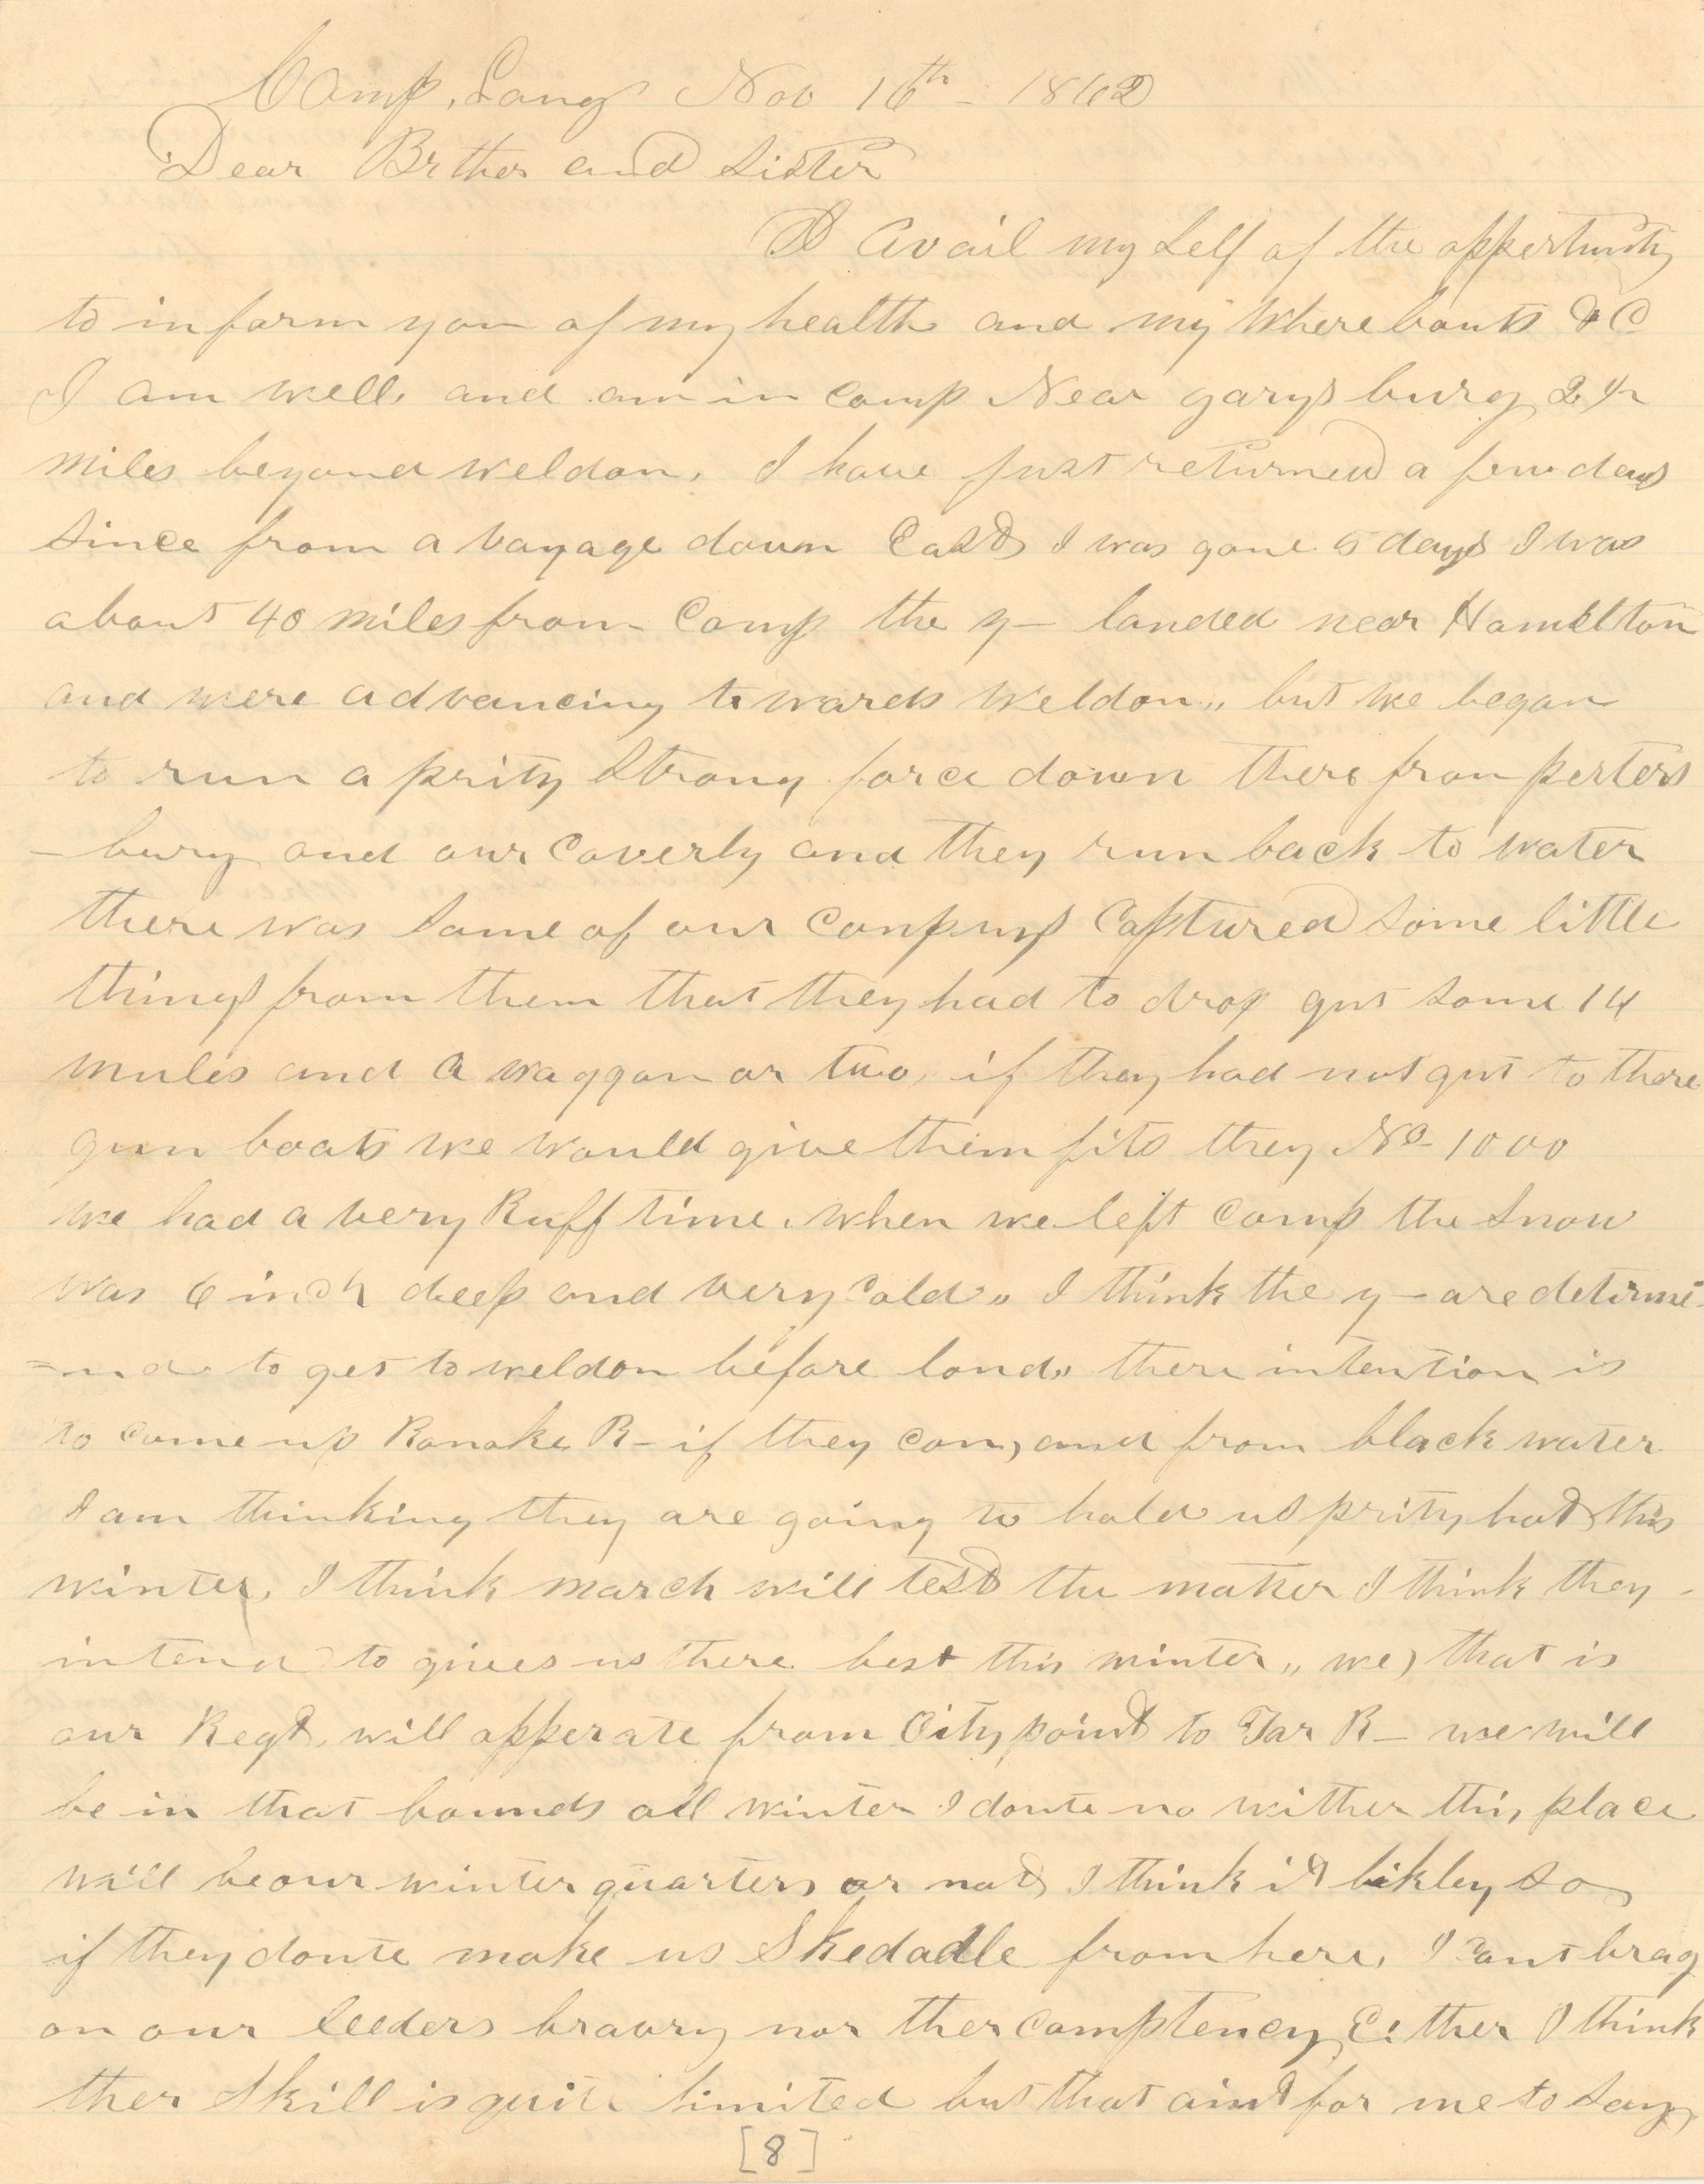 Camp Long Nov 16th - 1862
Dear Brther and Sister
I avail my self of the oppertunity
to in farm you of my health and my Where bouts &C
I am well, and am in camp Near garysburg 2 1/2
miles beyond weldon, I have just returned a few days
since from a voyage down East I was gone 5 days I was
about 40 miles from Camp the y— landed near Hamilton
and were advancing to wards Weldon,, but we began
to run a prity Strong force down there from peters
-burg and our Caverly and they run back to water
there was Some of our Captured some little
things from them that they had to drop got some 14
mules and a waggon or two, if they had not got to there
gun boats we would give them fits they No- 1000
we had a very Ruff time, when we left camp the Snow
was 6 inch deep and very Cold,, I think the y— are detirmi-
=nd to get to weldon before long,, there intention is
to come up Ronoke R— if they can, and from black water
I am thinking they are going to hold us prity hot this
winter, I think march will test the matter I think they -
intend to gives us there best this winter,, we) that is
our Regt, will opperate from City point to Tar R— we will
be in that bounds all winter I donte no wither this place
will be our winter quarters or not I think it likley So
if they donte make us Skedadle from here, I cant brag
on our leeders bravry nor ther comptency Either I think
ther Skill is quite limited but that aint for me to Say,
[8]